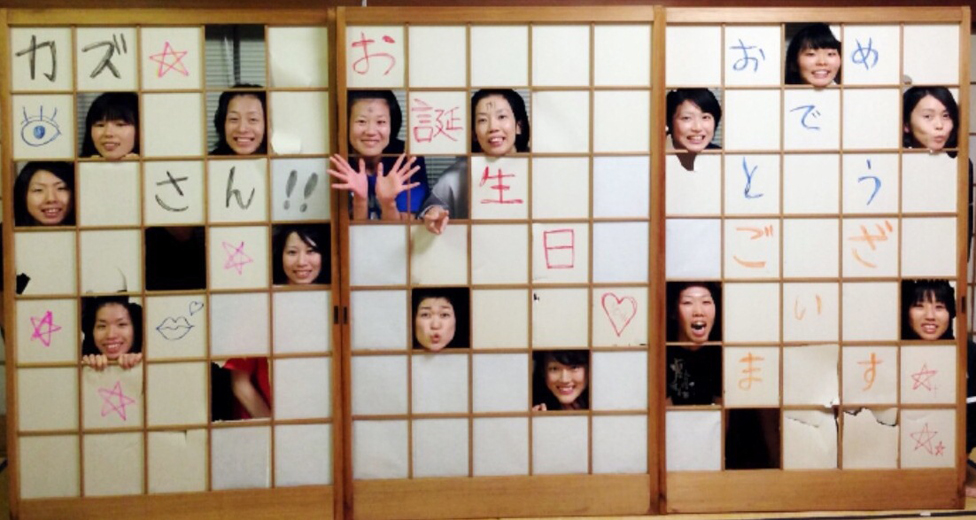 カズ☆
さん!!
☆
☆
☆
お
誕
生
日
♡
おめ
で
とう
ござ
い
ます☆
☆☆